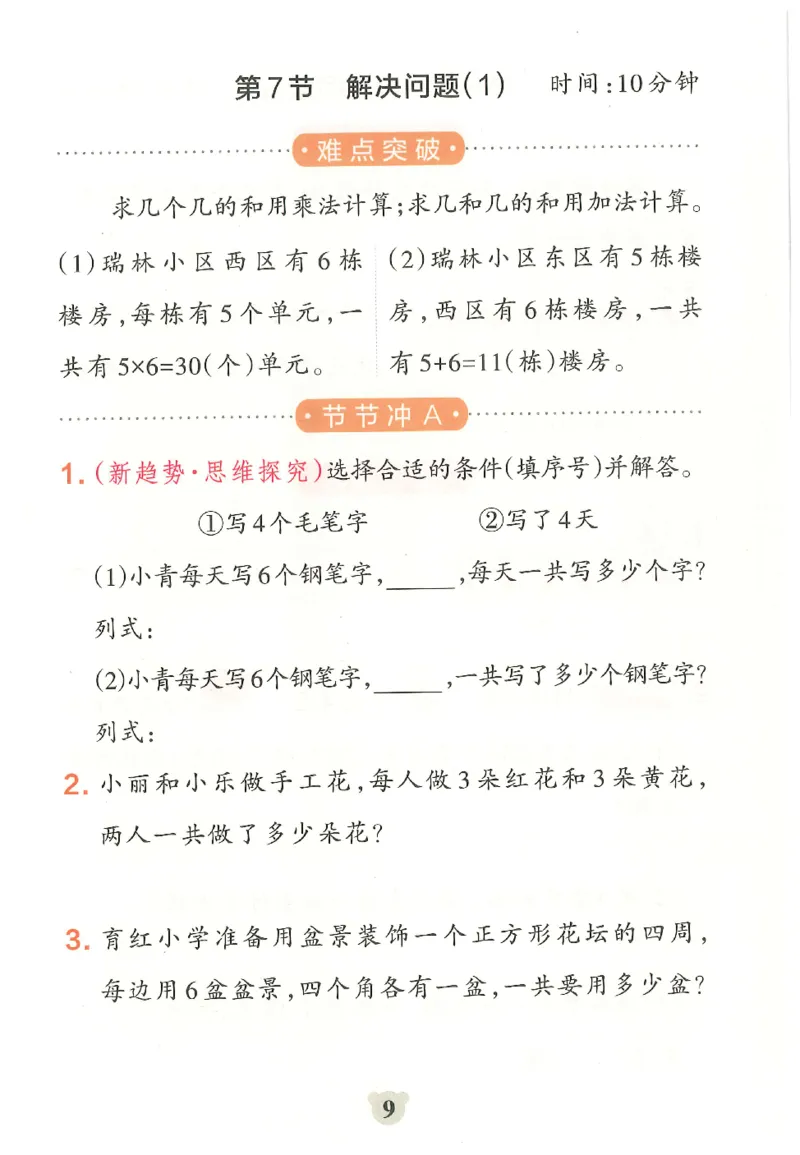 第7节 解决问题(1) 时间:10分钟
·难点突破·
求几个几的和用乘法计算;求几和几的和用加法计算。
(1)瑞林小区西区有6栋
楼房,每栋有5个单元,一
共有5×6=30(个)单元。
(2)瑞林小区东区有5栋楼
房,西区有6栋楼房,一共
有5+6=11(栋)楼房。
·节节冲A·
1.(新趋势·思维探究)选择合适的条件(填序号)并解答。
①写4个毛笔字 ②写了4天
(1)小青每天写6个钢笔字,_____,每天一共写多少个字?
列式:
(2)小青每天写6个钢笔字,_____,一共写了多少个钢笔字?
列式:
2. 小丽和小乐做手工花,每人做3朵红花和3朵黄花,
两人一共做了多少朵花?
3. 育红小学准备用盆景装饰一个正方形花坛的四周,
每边用6盆盆景,四个角各有一盆,一共要用多少盆?
9